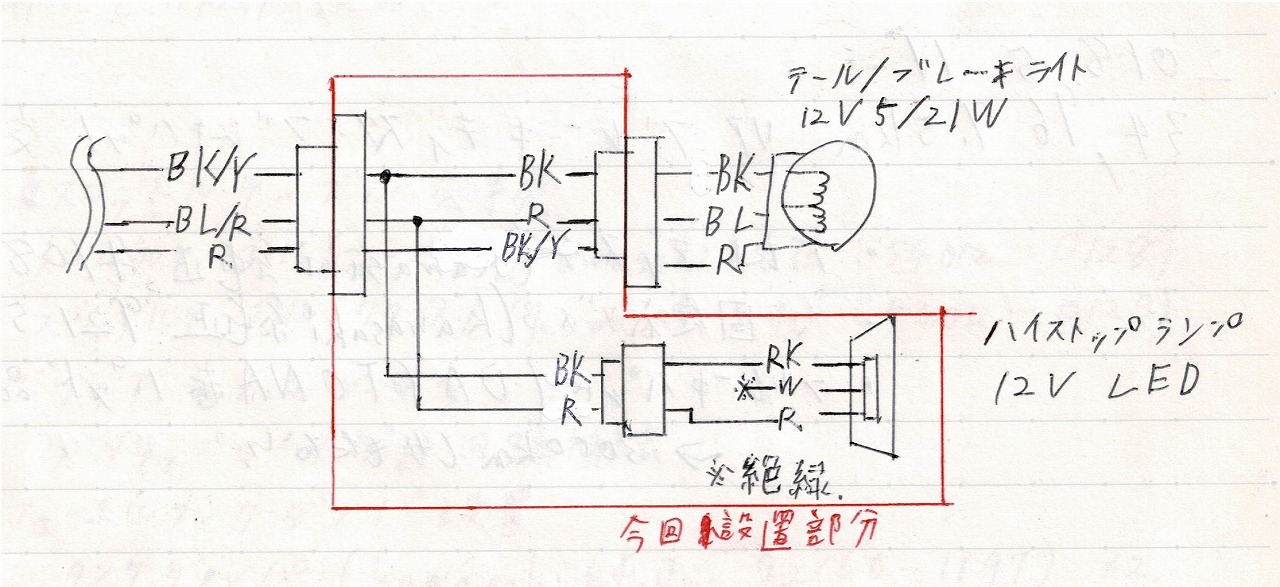 テール/ブレーキライト
12V 5/21W
BK/Y
BL/R
R
BK
R
BK/Y
BK
BL
R
ハイストップランプ
12V LED
BK
R
RK
※ W
R
※絶縁.
今回設置部分